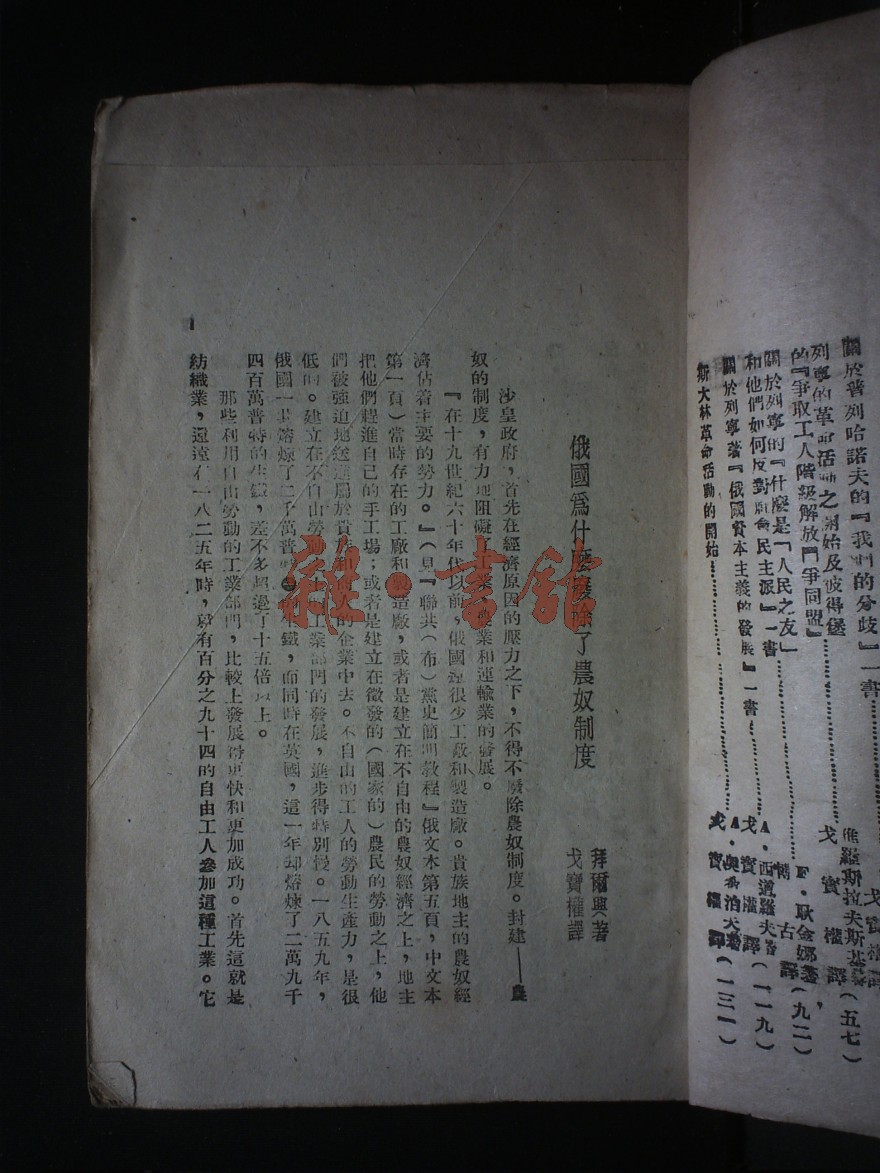 關於普列哈諾夫的『我們的分歧』一書
戈寶權譯
列寧的革命活動之開始及彼得堡
的『爭取工人階級解放鬥爭同盟』
雅羅斯拉夫斯基著
戈寶權譯(五七)
關於列寧的『什麼是「人民之友」
和他們如何反對社會民主派』一書
F·耿金娜著
博古譯(九二)
關於列寧著『俄國資本主義的發展』一書
A·西道羅夫著
戈寶權譯(一一九)
斯大林革命活動的開始
戈寶權譯(一三一)
俄國爲什麼廢除了農奴制度
拜爾興著
戈寶權譯
沙皇政府,首先在經濟原因的壓力之下,不得不廢除農奴制度。封建——農
奴的制度,有力地阻礙了工業、農業和運輸業的發展。
『在十九世紀六十年代以前,俄國還很少工廠和製造廠。貴族地主的農奴經
濟佔着主要的勢力。』(見『聯共(布)黨史簡明教程』俄文本第五頁,中文本
第一頁)當時存在的工廠和製造廠,或者是建立在不自由的農奴經濟之上,地主
把他們趕進自己的手工場;或者是建立在徵發的(國家的)農民的勞動之上,他
們被強迫地送進屬於貴族和商人的企業中去。不自由的工人的勞動生產力,是很
低的。建立在不自由勞動上的工業部門的發展,進步得特別慢。一八五九年,
俄國一共熔煉了二千萬普特的生鐵,而同時在英國,這一年却熔煉了二萬九千
四百萬普特的生鐵,差不多超過了十五倍以上。
那些利用自由勞動的工業部門,比較上發展得更快和更加成功。首先這就是
紡織業,還遠在一八二五年時,就有百分之九十四的自由工人參加這種工業。它
1
雜·書館